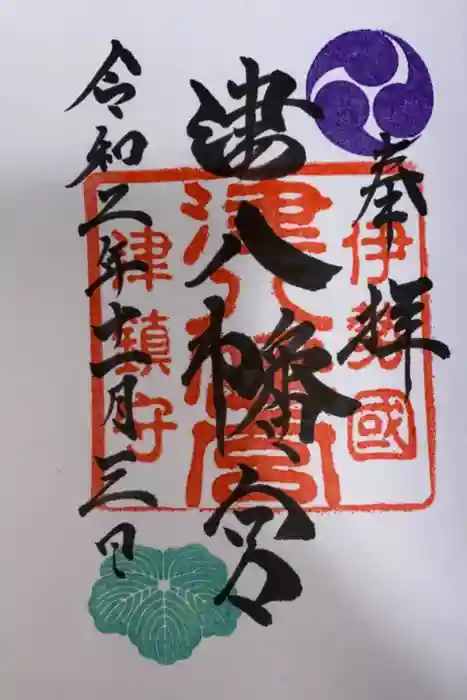 奉拝
津八幡宮
令和二年十一月三日
伊勢國
津八幡宮
津鎮守